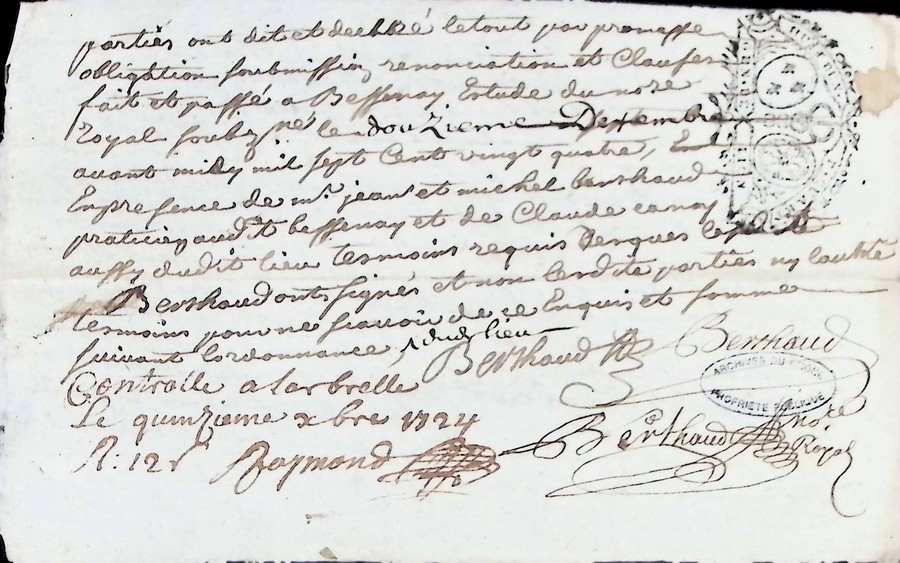 partiès ont dit et declaré le tout par promesse
obligation soubmission renonciation et Clauses
fait et passé a Bessenay Estude du nore
Royal soubzné le douzieme Dexembre
avant midy mil sept Cent vingt quatre,
En presence de mr. jean et michel berthaud
praticien audit bessenay et de Claude
aussy dudit lieu tesmoins requis desques
Berthaud ont signés et non lesdite parties ny lautre
tesmoins pour ne scavoir de ce Enquis et somme
suivant lordonnance dudt lieu
Berthaud
Berthaud
ARCHIVES DU RHÔNE
PROPRIÉTÉ PUBLIQUE
Controlle a larbrelle
Le quinzieme xbre 1724
R: 12s
Raymond
Berthaud
nore
Royal